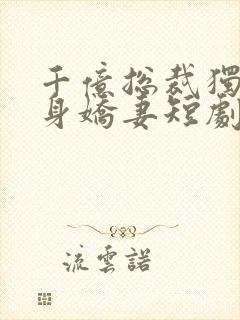 千億總裁獨
身嬌妻短劇
流雲諾